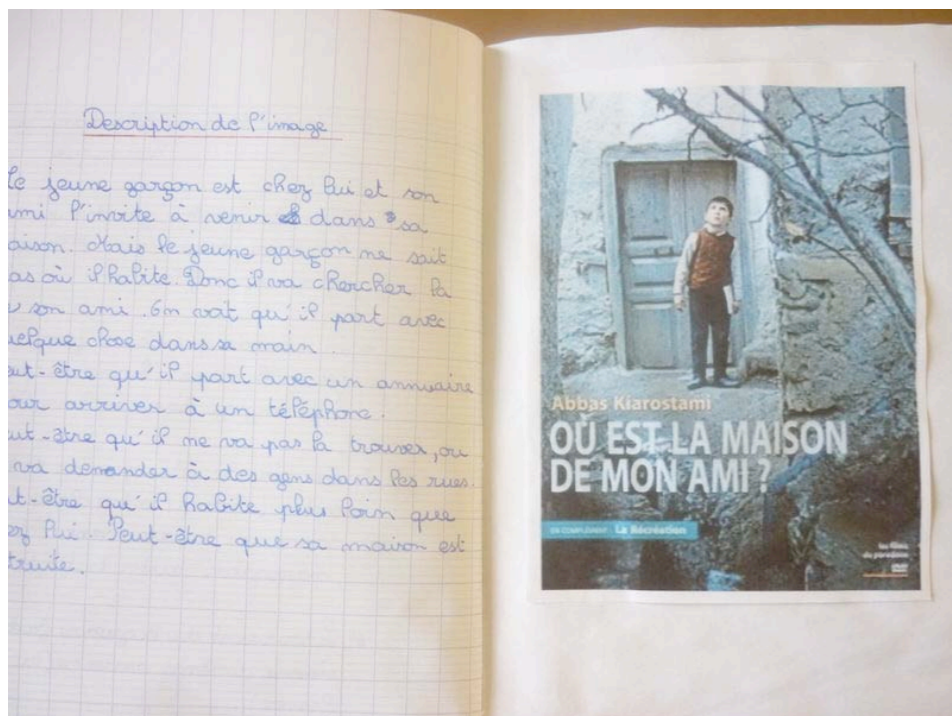 Description de l'image
Le jeune garçon est chez lui et son
ami l'invite à venir dans sa
aison. Mais le jeune garçon ne sait
as où il habite. Donc il va chercher la
son ami. On voit qu'il part avec
uelque chose dans sa main.
eut-être qu'il part avec un annuaire
our arriver à un téléphone.
eut-être qu'il ne va pas la trouver, ou
va demander à des gens dans les rues.
ut-être qu'il habite plus loin que
ez lui. Peut-être que sa maison est
truite.
Abbas Kiarostami
OÙ EST LA MAISON
DE MON AMI ?
EN COMPLÉMENT La Récréation
les films
du paradoxe
DVD